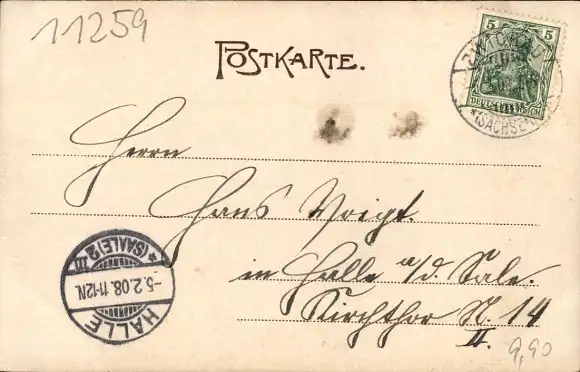 11259
POSTKARTE.
5 5
DEUTSCHES REICH
ZWICKAU
*(SACHSEN)
Herrn
Hans Voigt.
in Halle a/d. Sale.
Kirchthor N. 14
II.
HALLE
-5.2.08.11-12N.
*(SAALE)2
III
9,90